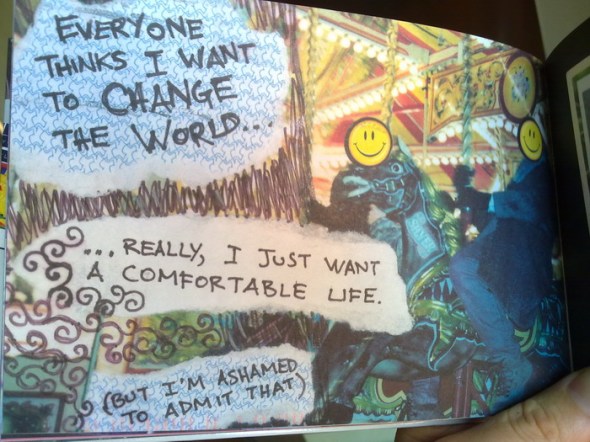 EVERYONE
THINKS I WANT
TO CHANGE
THE WORLD...
... REALLY, I JUST WANT
A COMFORTABLE LIFE.
(BUT I'M ASHAMED
TO ADMIT THAT)